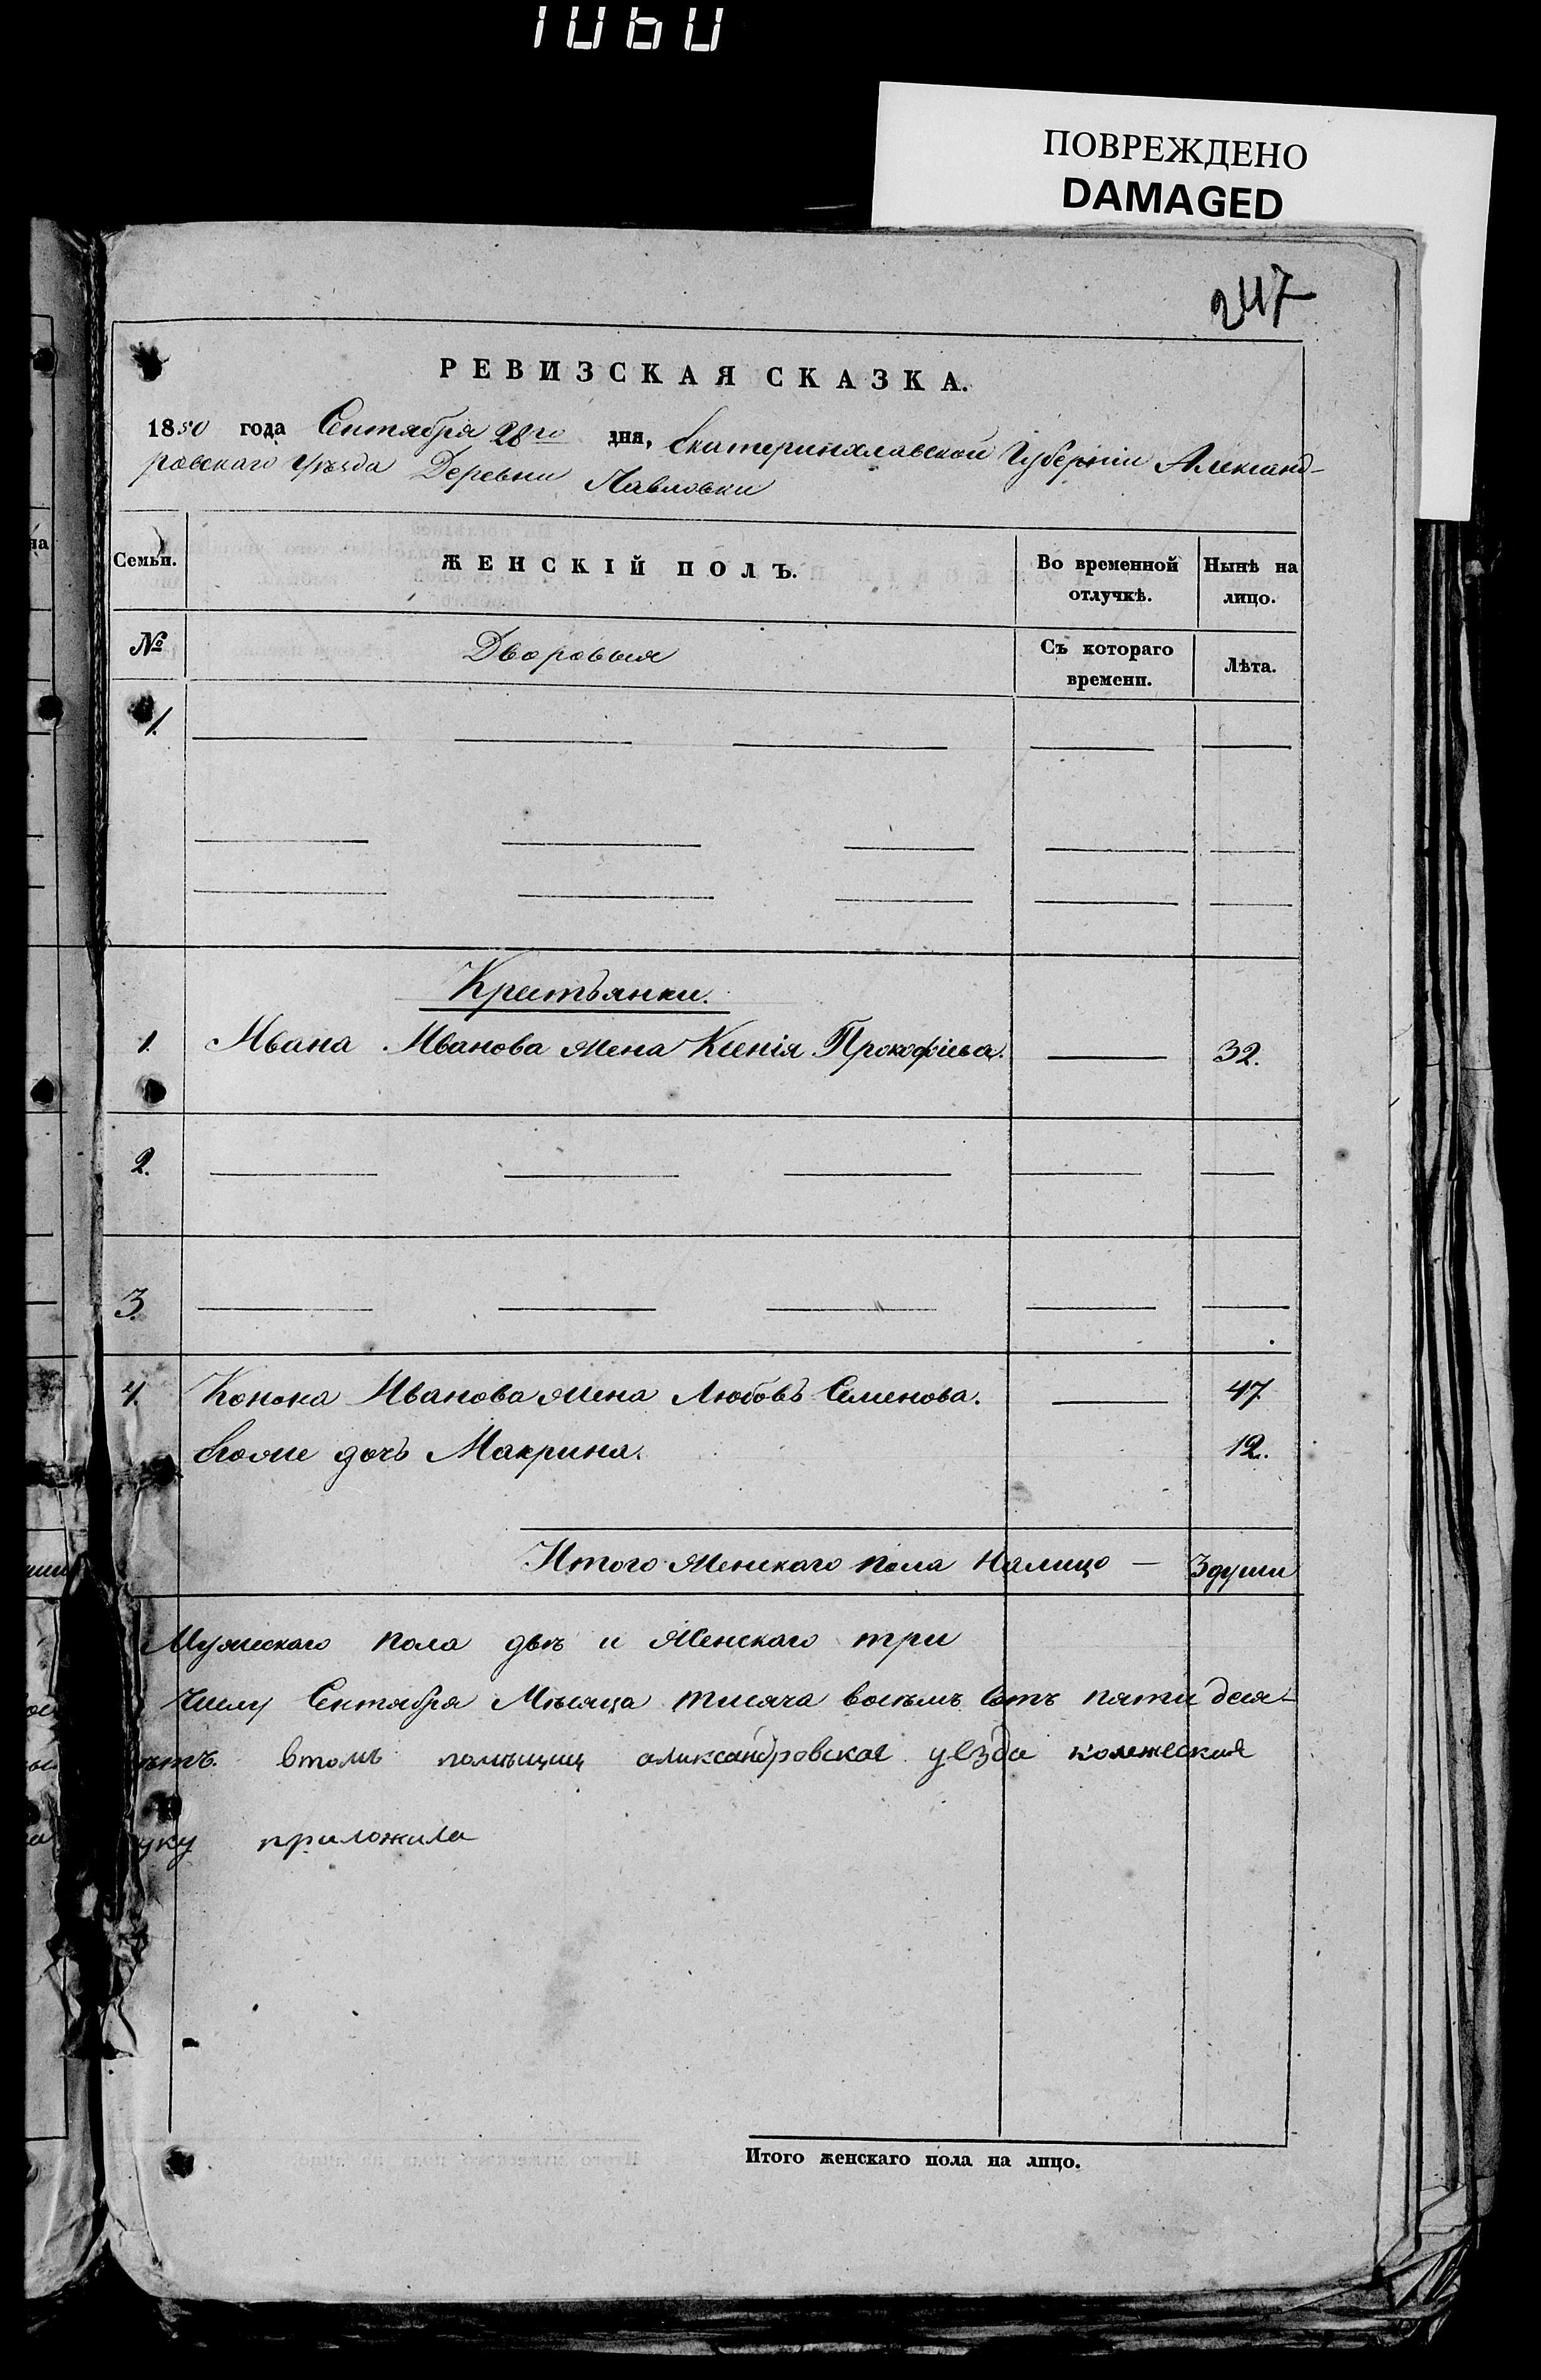 1060
ПОВРЕЖДЕНО
DAMAGED
247
РЕВИЗСКАЯ СКАЗКА.
1850 года Сентября 28го дня, Екатеринославской Губерніи Александ-
ровскаго Уѣзда Деревни Павловки
Семьи. ЖЕНСКІЙ ПОЛЪ. Во временной отлучкѣ. Нынѣ на лицо.
№ Дворовыя Съ котораго времени. Лѣта.
1.
Крестьянки.
1. Ивана Иванова жена Ксенія Прокофіева. 32.
2.
3.
4. Конона Иванова жена Любовь Семенова. 47
Егоже дочь Макрина. 12.
Итого женскаго пола налицо — 3 души
Мужескаго пола двѣ и Женскаго три
Числу Сентября Мѣсяца тысяча восѣмъ сотъ пяти деся-
втомъ помѣщиц александровскаг уезда колежская
уку приложила
Итого женскаго пола на лицо.